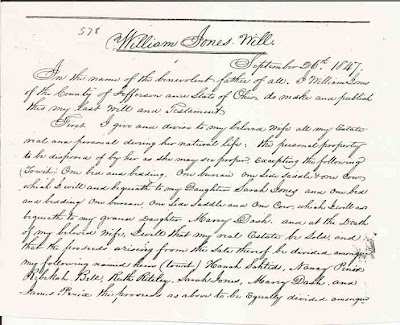 578
William Jones Will.
September 26th 1847.
In the name of the benevolent father of all. I William Jones
of the County of Jefferson and State of Ohio do make and publish
this my last Will and Testament
First I give and devise to my beloved wife all my Estate
real and personal during her natural life: the personal property
to be disposed of by her as she may see proper. Excepting the following
Towit: One bed and bedding. One bureau one Side Saddle & one Cow,
which I will and bequeath to my Daughter Sarah Jones and One bed
and bedding One bureau, One Side Saddle and One Cow, which I will and
bequeath to my grand daughter Mary Dash. and at the Death
of my beloved wife, I will that my real Estate be Sold, and
that the proceeds arising from the Sale thereof be devided among
my following named heirs (towit) Hanah Nancy
Rebekah Bell, Ruth Sarah Jones, Mary Dash and
James the proceeds as above to be Equally divided amongst